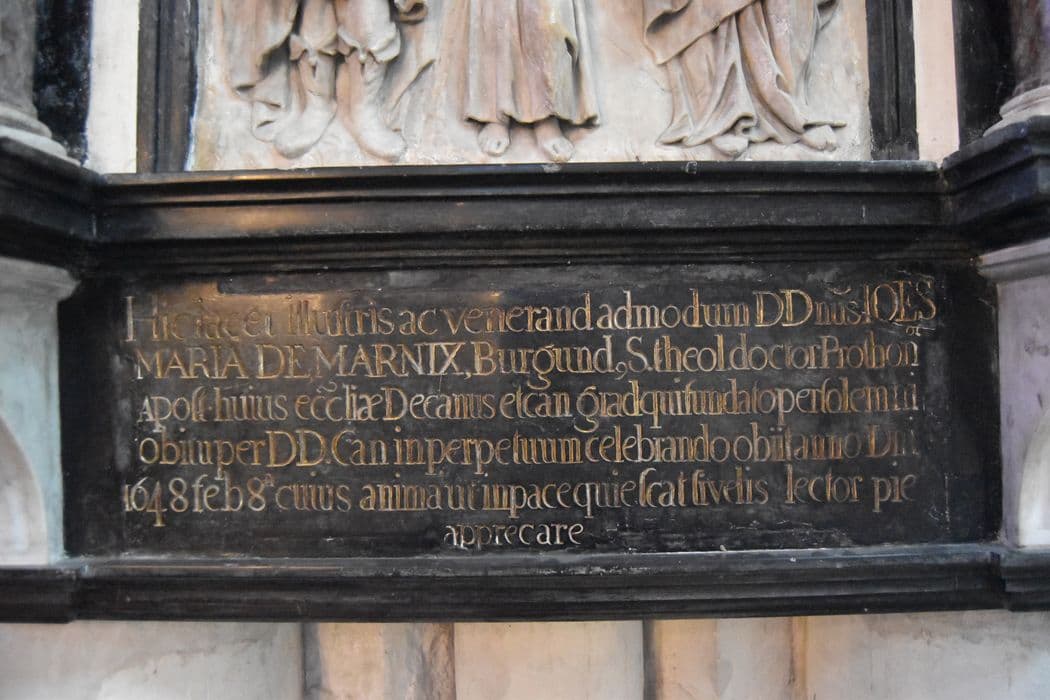 Hic iacet illustris ac venerand admodum DDnūs, IOĒS
MARIA DE MARNIX, Burgund, S. theol. doctor Prothonot
Apost huius ecc̄liæ Decanus et can gradq; fundato per solemni
obitu per DD Can in perpetuum celebrando obiit anno Dn̄i
1648 feb 8ᵃ cuius anima ut in pace quiescat si velis lector pie
apprecare